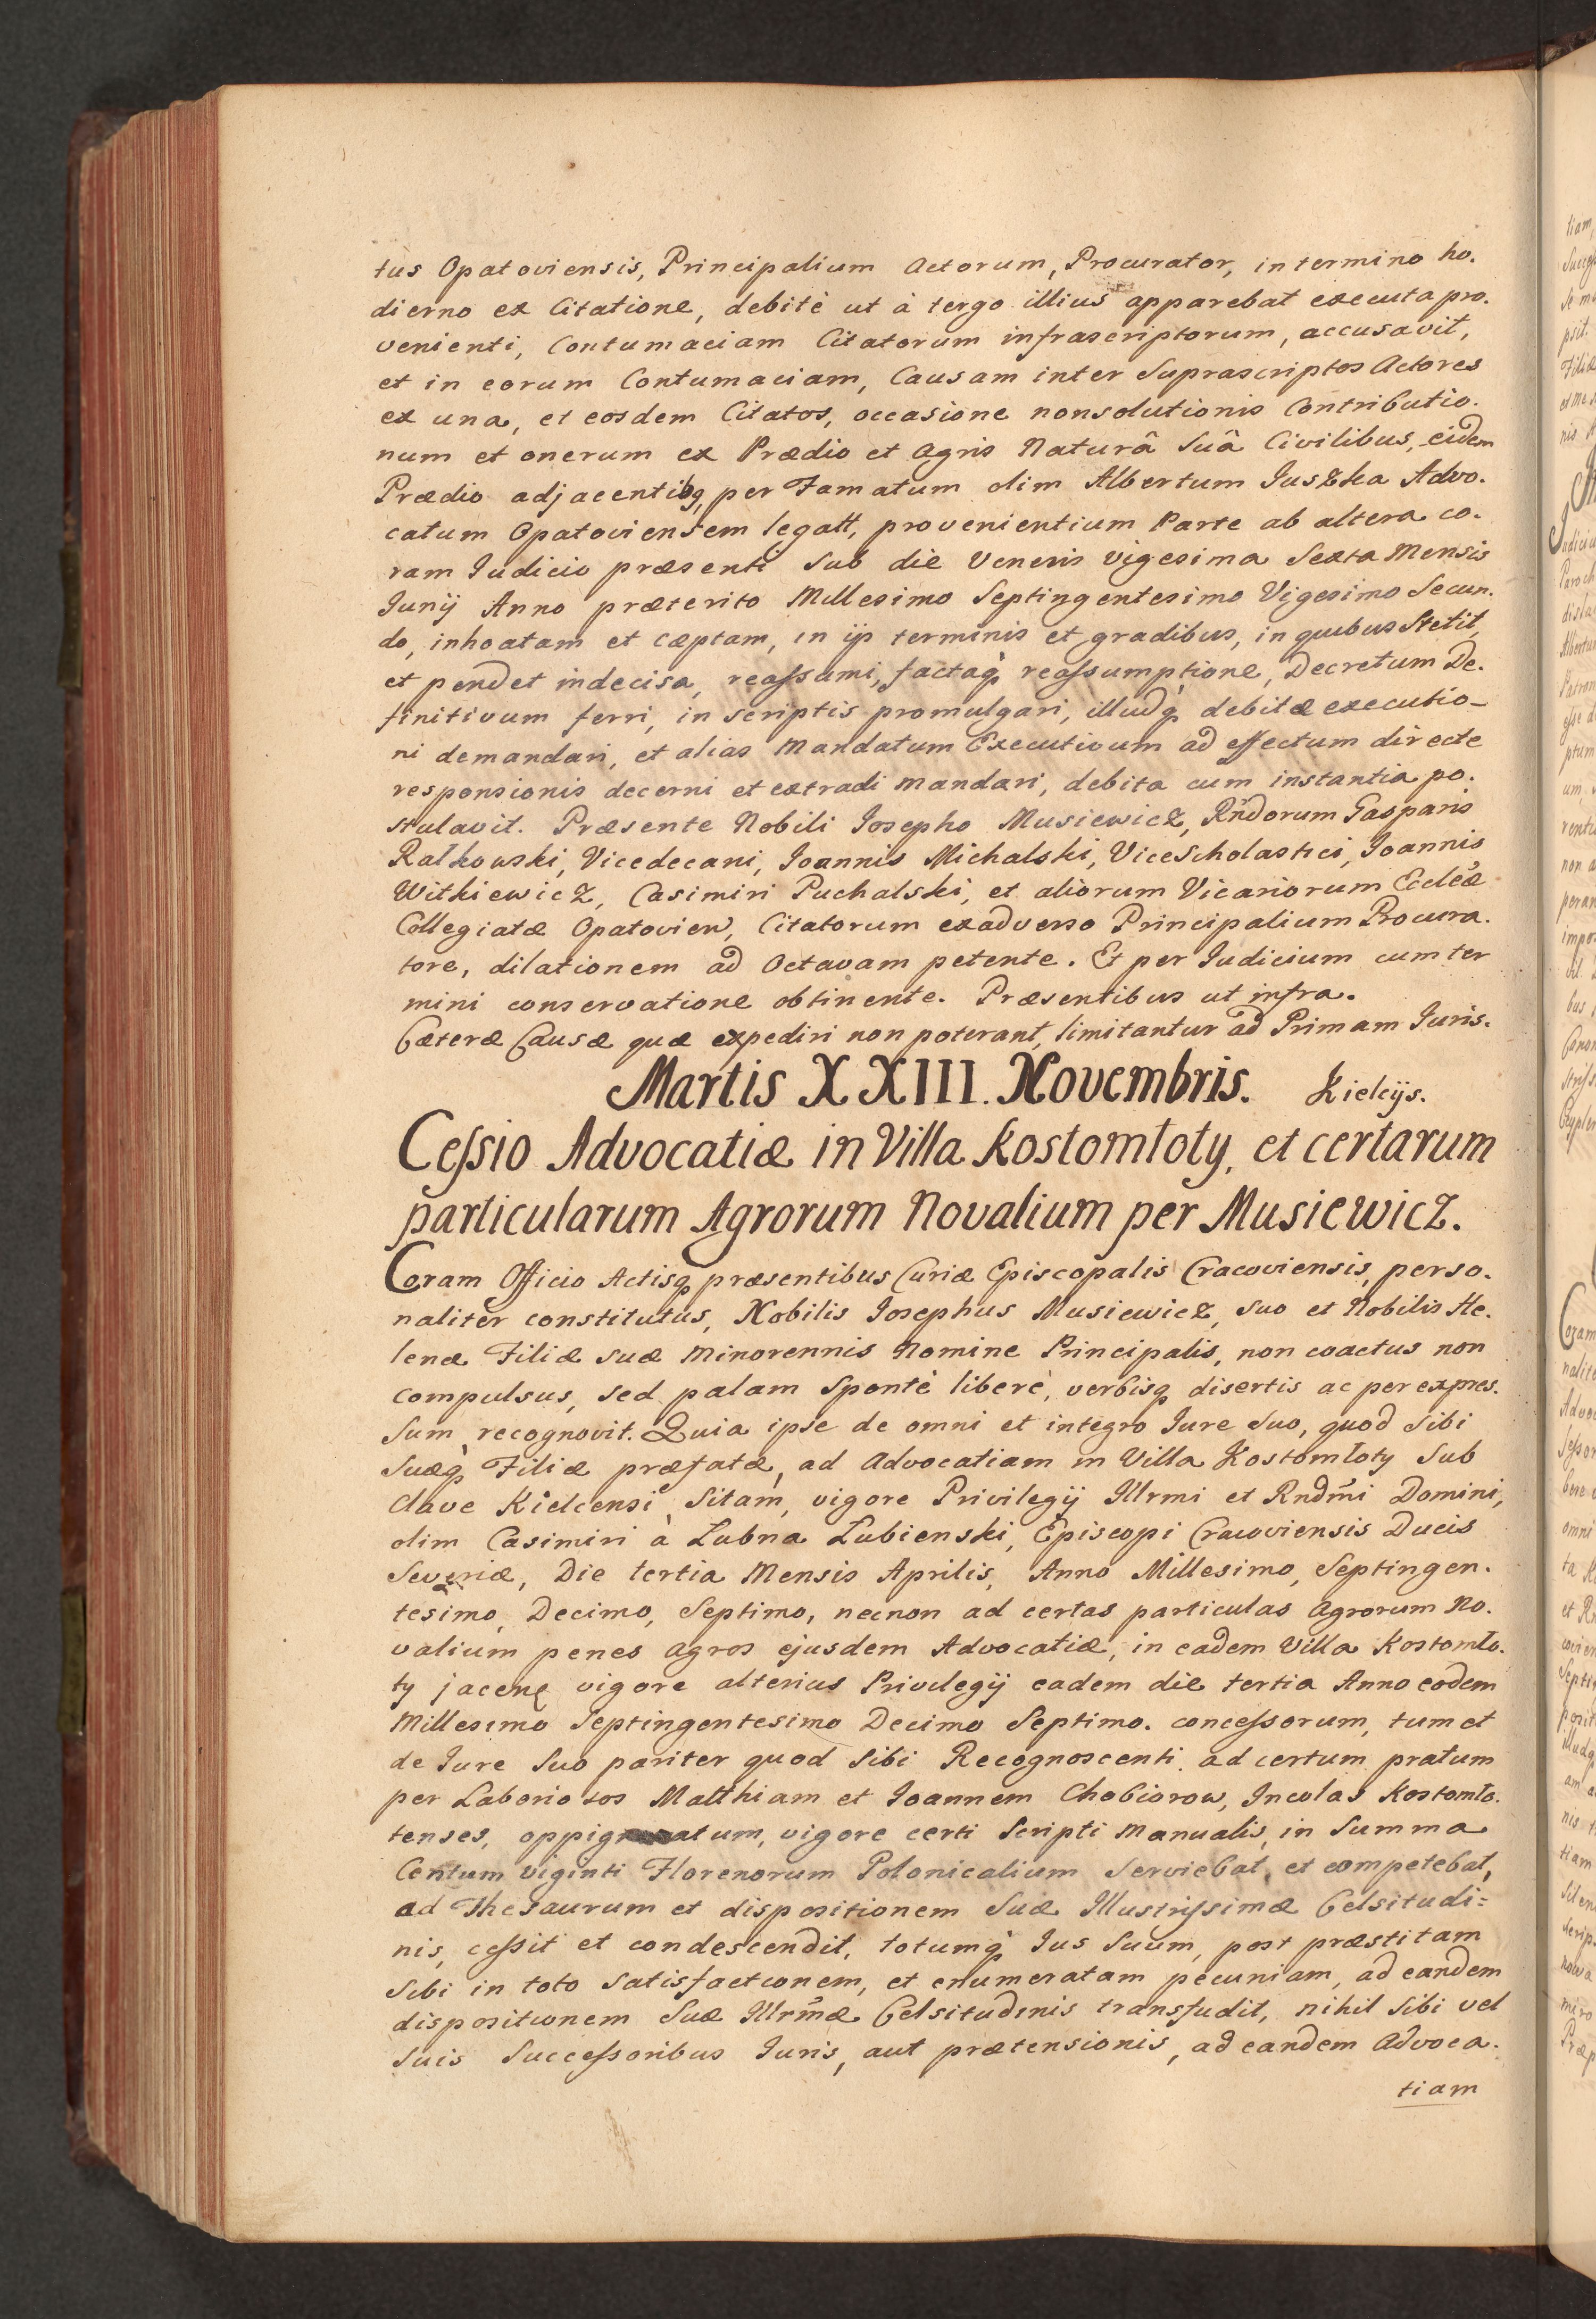 tus Opatoviensis, Principalium Actorum, Procurator, in termino ho.
dierno ex Citatione, debitè ut à tergo illius apparebat executa pro.
venienti, Contumaciam Citatorum infrascriptorum, accusavit,
et in eorum Contumaciam, Causam inter Suprascriptos Actores
ex una, et eosdem Citatos, occasione nonsolutionis Contributio.
num et onerum ex Prædio et Agris Naturâ Suâ Civilibus, eidem
Prædio adjacentibq, per Famatum olim Albertum Juszka Advo.
catum Opatoviensem legatt, provenientium Parte ab altera co.
ram Iudicio præsenti Sub die Veneris Vigesima Sexta Mensis
Junij Anno præterito Millesimo Septingentesimo Vigesimo Secun.
do, inhoatam et cæptam, in ijs terminis et gradibus, in quibus Stetit,
et pendet indecisa, reassumi, factaq̀ reassumptione, Decretum De.
finitivum ferri, in scriptis promulgari, illudq̀ debitæ executio-
ni demandari, et alias Mandatum Executivum ad effectum directe
responsionis decerni et extradi mandari, debita cum instantia po.
stulavit. Præsente Nobili Josepho Musiewicz, Rndorum Gasparis
Ratkowski, Vicedecani, Joannis Michalski, ViceScholastici, Joannis
Witkiewicz, Casimiri Puchalski, et aliorum Vicariorum Ecclēæ
Collegiatæ Opatovien, Citatorum exadverso Principalium Procura.
tore, dilationem ad Octavam petente. Et per Iudicium cum ter
mini conservatione obtinente. Præsentibus ut infra.
Cæteræ Causæ quæ expediri non poterant, limitantur ad Primam Iuris.
Martis XXIII. Novembris. Kielcijs.
Cessio Advocatiæ in Villa Kostomłoty, et certarum
particularum Agrorum Novalium per Musiewicz.
Coram Officio Actisq præsentibus Curiæ Episcopalis Cracoviensis, perso.
naliter constitutus, Nobilis Josephus Musiewicz, suo et Nobilis He.
lenæ Filiæ suæ Minorennis Nomine Principalis, non coactus non
compulsus, sed palam spontè liberè, verbisq disertis ac per expres.
sum recognovit. Quia ipse de omni et integro Iure suo, quod sibi
suæq̀ Filiæ præfatæ, ad Advocatiam in Villa Kostomłoty Sub
Clave Kielcensi Sitam, vigore Privilegij Illrmi et Rndm̄i Domini,
olim Casimiri à Łubna Łubienski, Episcopi Cracoviensis Ducis
Severiæ, Die tertia Mensis Aprilis, Anno Millesimo, Septingen.
tesimo, Decimo, Septimo, necnon ad certas particulas Agrorum No.
valium penes Agros ejusdem Advocatiæ, in eadem Villa Kostomło.
ty jacenę vigore alterius Privilegij eadem die tertia Anno eodem
Millesimo Septingentesimo Decimo Septimo. concessorum, tum et
de Iure Suo pariter quod Sibi Recognoscenti. ad certum pratum
per Laboriosos Matthiam et Joannem Chobiorow, Incolas Kostomło.
tenses, oppignoratum, vigore certi Scripti Manualis, in Summa
Centum viginti Florenorum Polonicalium Serviebat, et competebat,
ad Thesaurum et dispositionem Suæ Illustrissimæ Celsitudi=
nis, cessit et condescendit, totumq̀ Ius Suum, post præstitam
Sibi in toto satisfactionem, et enumeratam pecuniam, ad eandem
dispositionem Suæ Illrm̄æ Celsitudinis transfudit, nihil Sibi vel
Suis Successoribus Iuris, aut prætensionis, ad eandem Advoca.
tiam